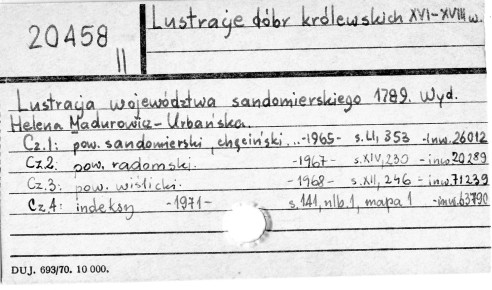 20458
II
Lustracje dóbr królewskich XVI-XVIII w.
Lustracja województwa sandomierskiego 1789. Wyd.
Helena Madurowicz-Urbańska.
Cz.1: pow. sandomierski, chęciński...-1965- s.LI, 353 -inw.26012
Cz.2: pow. radomski. -1967- s.XIV, 230 -inw.20289
Cz.3: pow. wiślicki. -1968- s.XII, 246 -inw.71239
Cz.4: indeksy -1971- s.141, nlb.1, mapa 1 -inw.63790
DUJ. 693/70. 10 000.